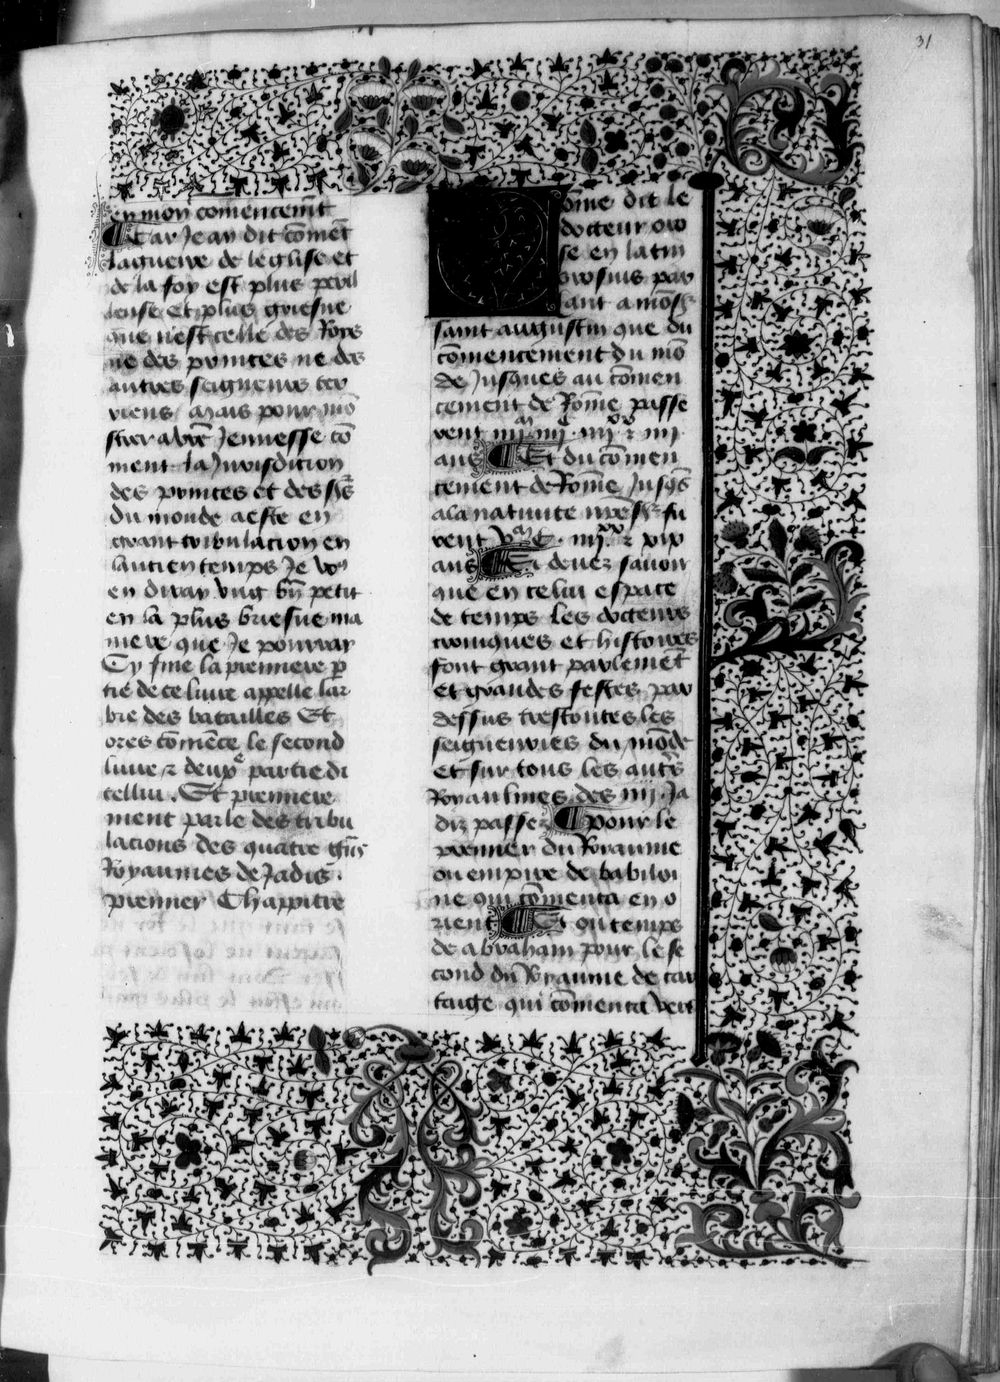 31
en mon comencemt̃
Car Jean dit cõmet̃
la guerre de leglise et
de la foy est plus peril
leuse et plus griesue
que nest celle des Roys
ne des princes ne des
autres seigneurs ter
riens / mais pour mõ
strer a vr̃e Jeunesse cõ
ment la Jurisdicion
des princes et des sg̃s
du monde a este en
grant tribulacion en
lancien temps Je voꝰ
en diray vng bñ petit
en la plus briesue ma
niere que Je pourray
Cy fine la premiere ꝑ
tie de ce liure appelle lar
bre des batailles Et
ores cõmẽce le second
liure ⁊ deuxe partie di
cellui . Et premiere
ment parle des tribu
lacions des quatre gñs
Royaumes de Jadis .
premier Chappitre
Cõme dit le
docteur oro
se en latin
orosius par
lant a mõss̃
saint augustin que du
cõmencement du mõ
de Jusques au cõmen
cement de Rõme passe
rent iiijm iiijc iiijxx ⁊ iiij
ans Et du cõmen
cement de Rõme Jusq̃s
a la natiuite nr̃e sgr̃ fu
rent vijc iiijxx ⁊ xix
ans Et deuez sauoir
que en celui espace
de temps les docteurs
croniques et histoires
font grant parlemẽt
et grandes festes par
dessus trestoutes les
seigneuries du mõde
et sur tous les autr̃s
Royaulmes des iiij Ja
diz passez pour le
premier du Royaume
ou empire de babiloi
ne qui cõmenca en o
rient Et ou temps
de abraham pour le se
cond du Royaume de car
taige qui cõmenca vers